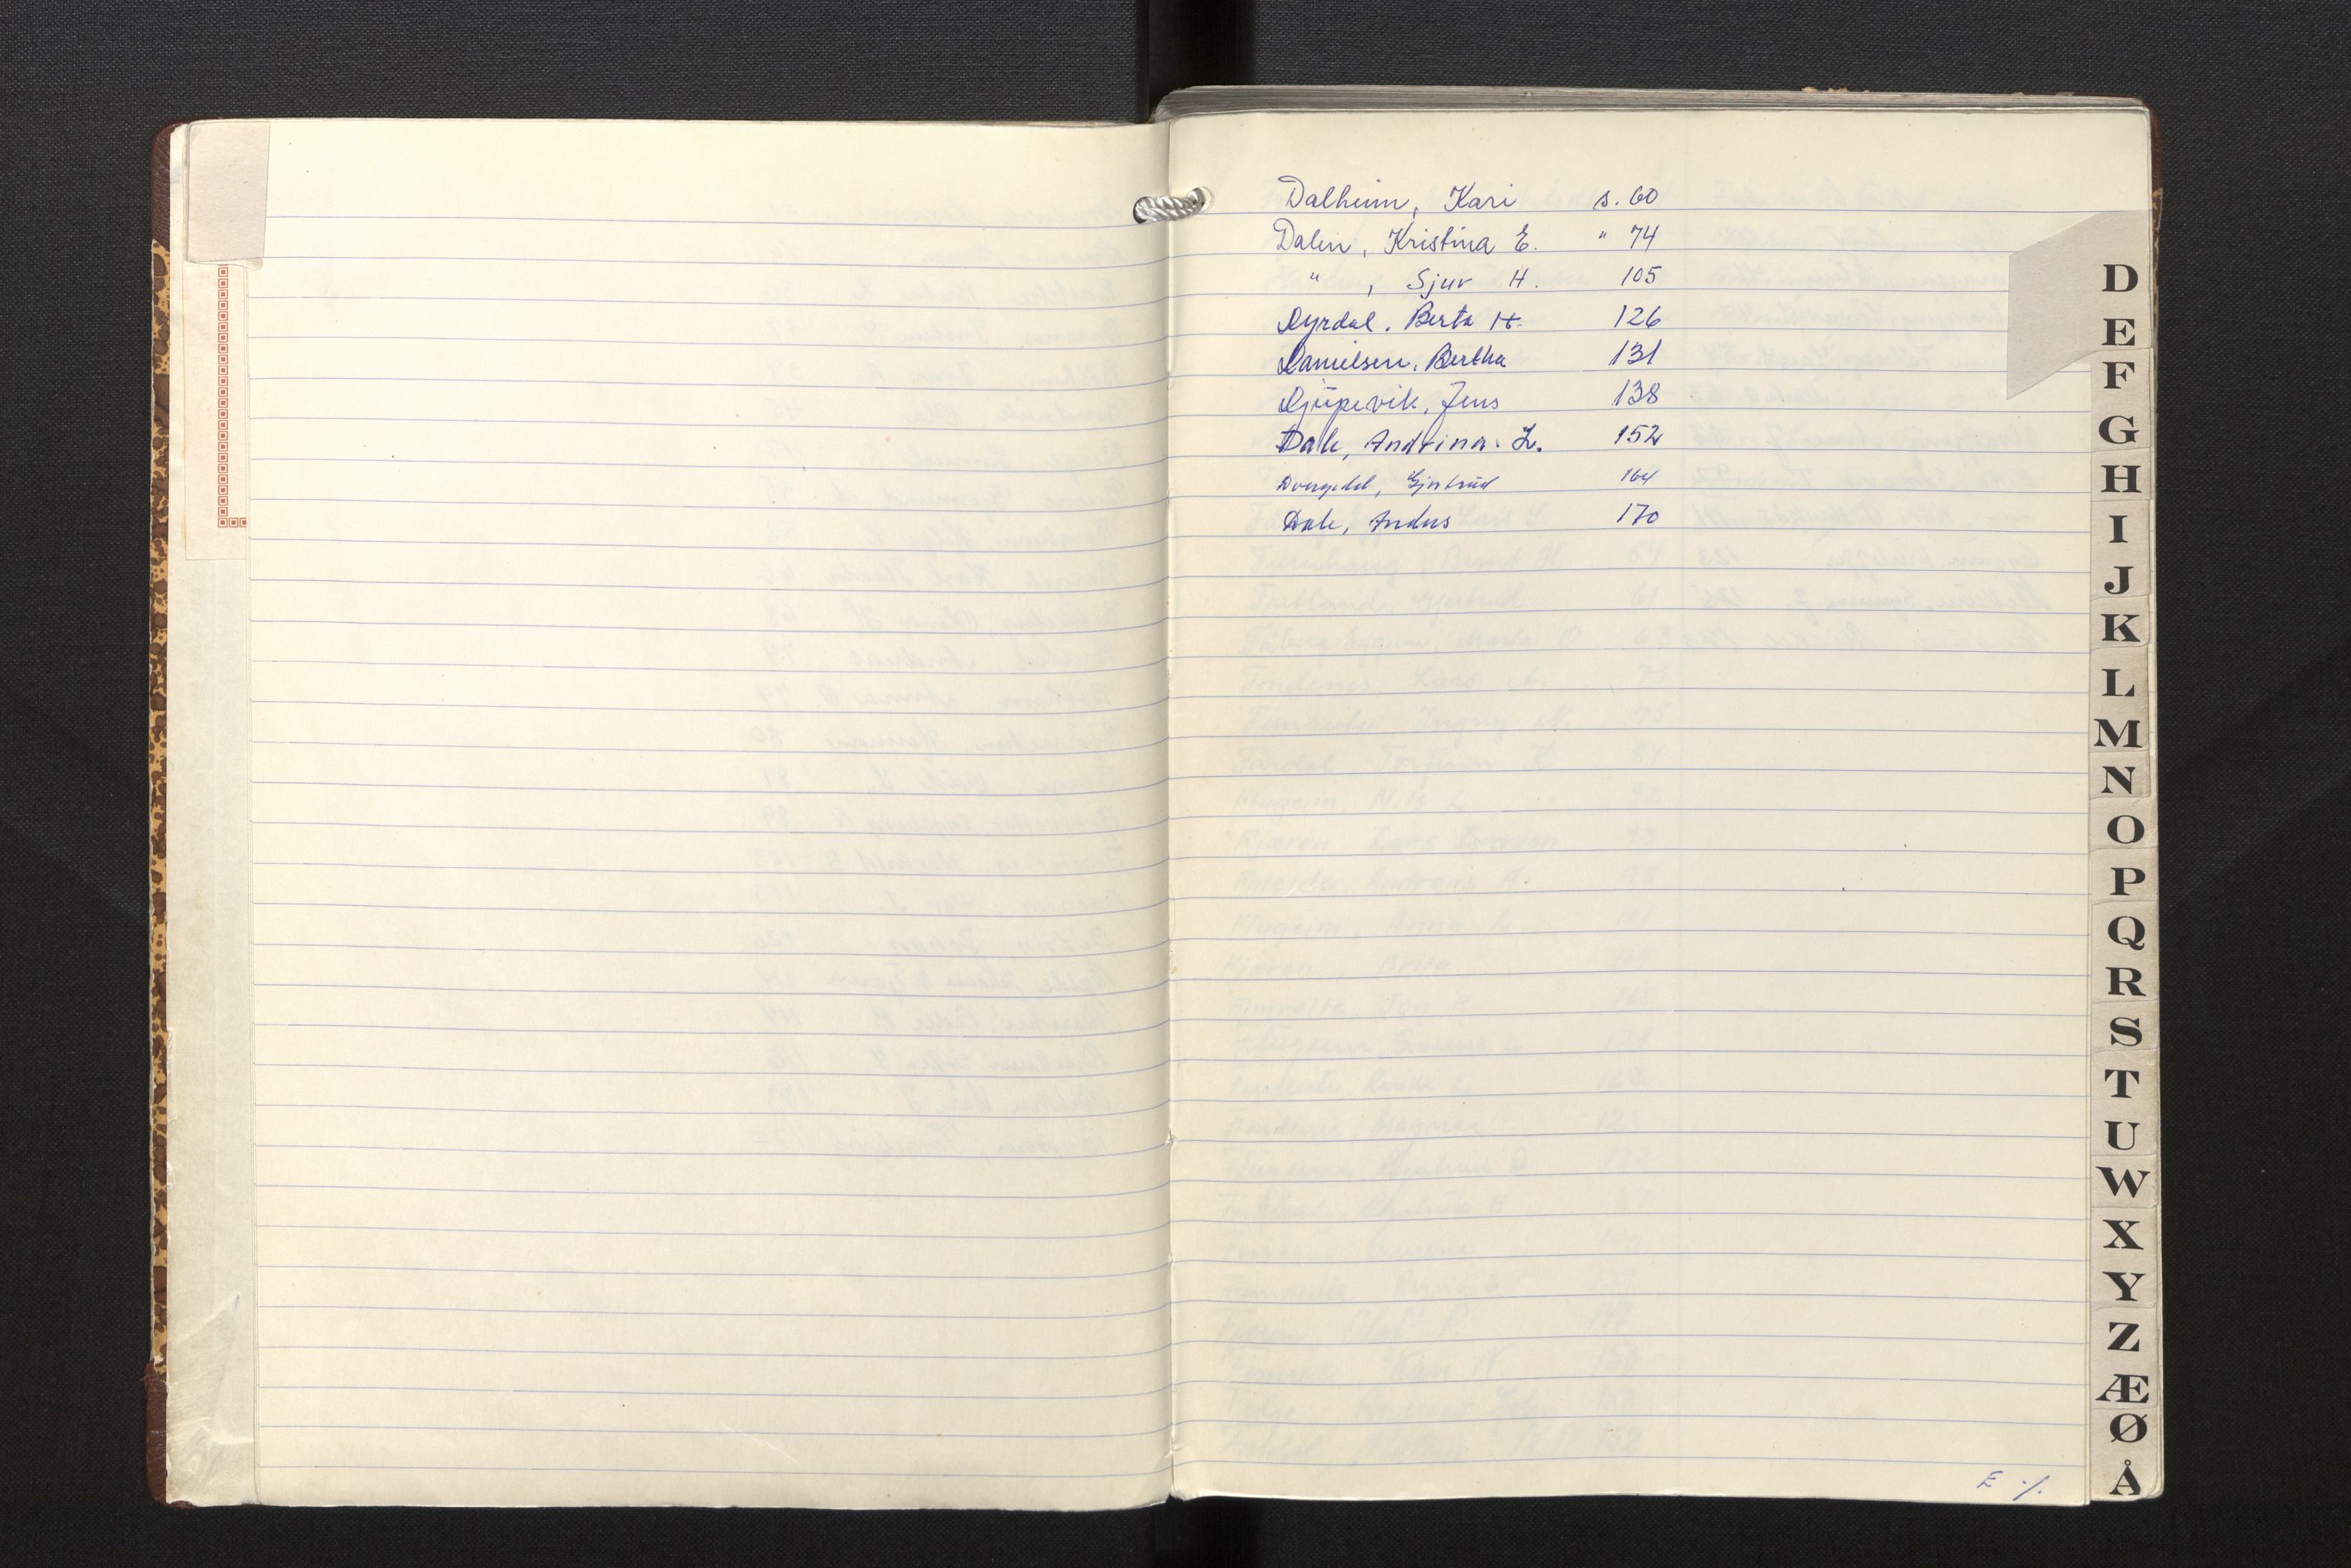 Dalheim, Kari s. 60
Dalen, Kristina E. " 74
" , Sjur H. 105
Dyrdal, Berta H. 126
Danielsen, Bertha 131
Djupevik, Jens 138
Dale, Andrina L. 152
Dvergedal, Gjertrud 164
Dale, Anders 170
E ·/.
D
E
F
G
H
I
J
K
L
M
N
O
P
Q
R
S
T
U
W
X
Y
Z
Æ
Ø
Å